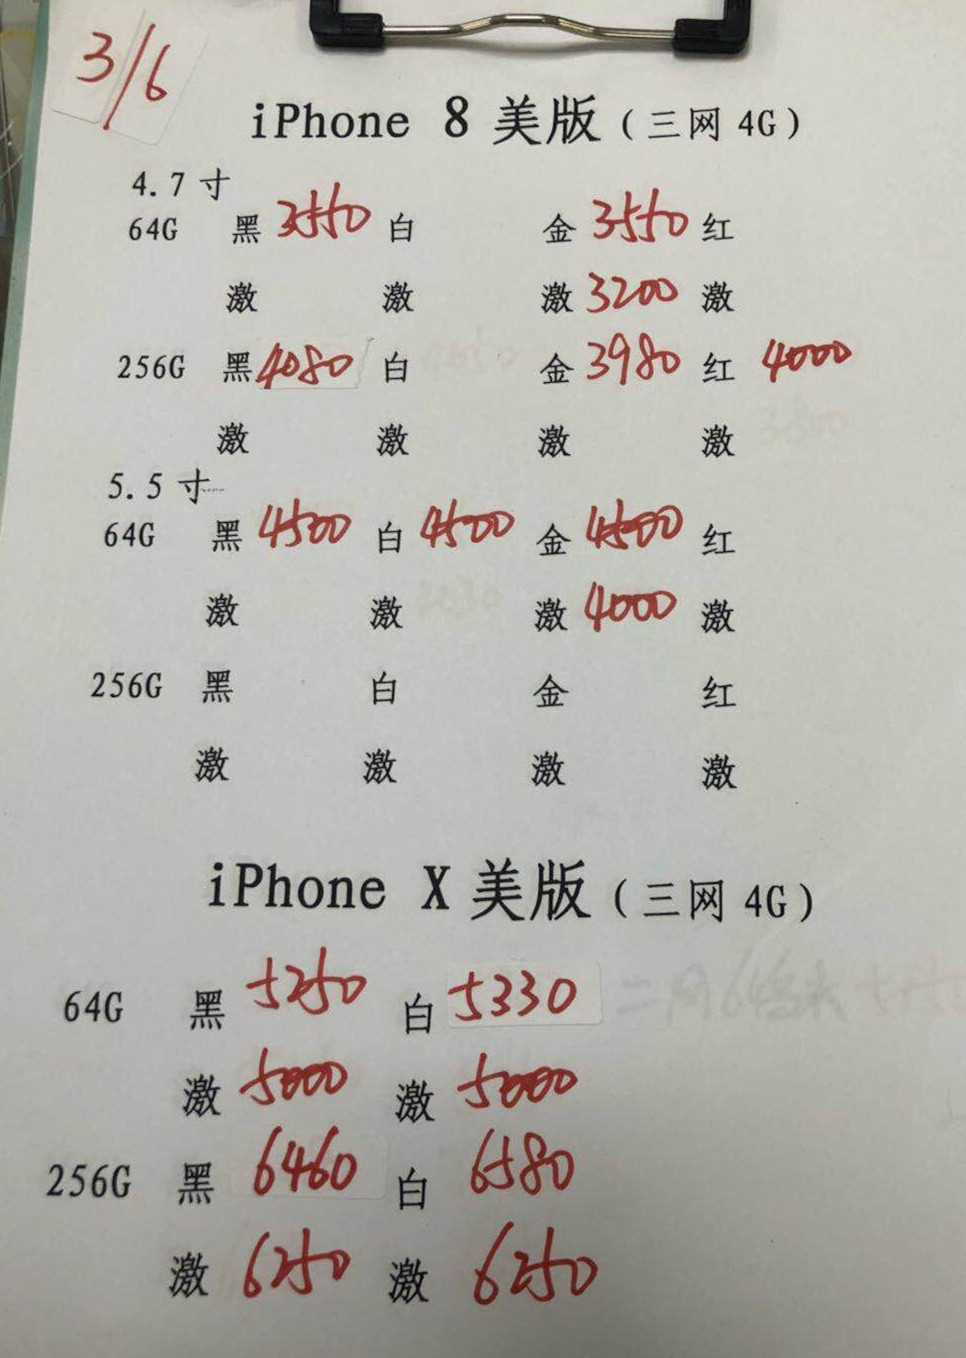 3/6
iPhone 8 美版（三网 4G）
4.7 寸
64G 黑 3550 白 金 3550 红
激 激 激 3200 激
256G 黑 4080 白 金 3980 红 4000
激 激 激 激
5.5 寸
64G 黑 4500 白 4500 金 4500 红
激 激 激 4000 激
256G 黑 白 金 红
激 激 激 激
iPhone X 美版（三网 4G）
64G 黑 5250 白 5330
激 5000 激 5000
256G 黑 6460 白 6580
激 6250 激 6250